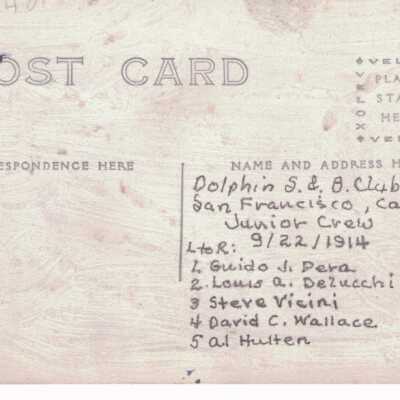 OST CARD
VEL
PLA
STA
HE
VEL
VELOX
RESPONDENCE HERE
NAME AND ADDRESS H
Dolphin S. & B. Club
San Francisco, Ca
Junior Crew
L to R: 9/22/1914
1. Guido J. Pera
2. Louis A. Delucchi
3 Steve Vicini
4 David C. Wallace
5 Al Hulten